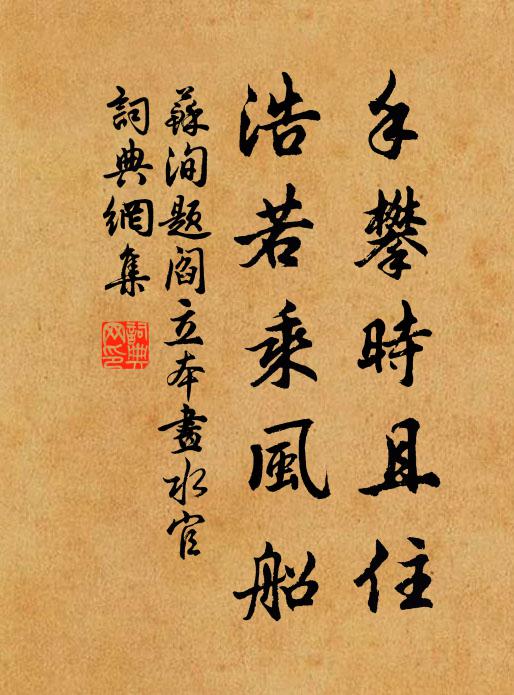 手攀時且住
浩若乘風船
蘇洵題閻立本畫水官
詞典網集
詞典
网印